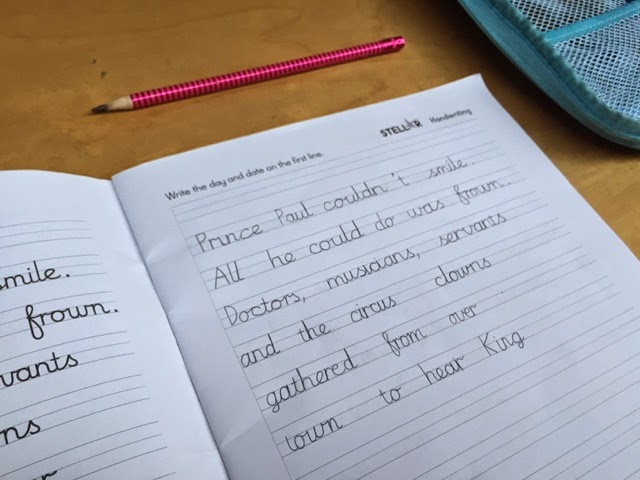 smile.
frown.
vants
ns
r
STELLAR Handwriting
Write the day and date on the first line.
Prince Paul couldn't smile.
All he could do was frown.
Doctors, musicians, servants
and the circus clowns
gathered from over
town to hear King